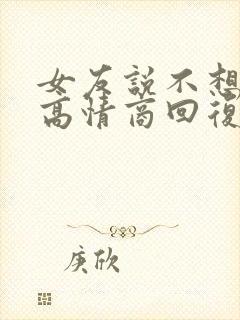 女友說不想
高情商回復
庚欣